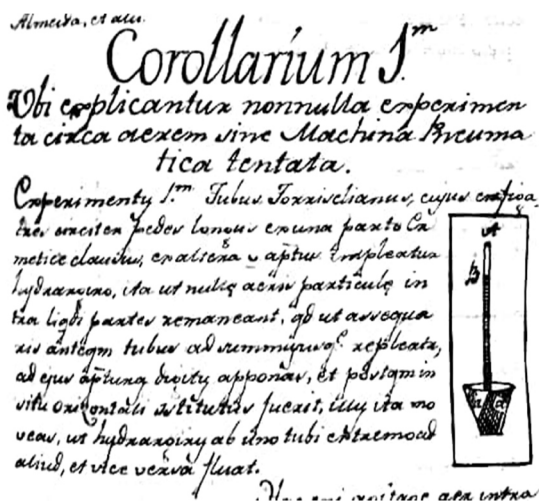 Almeida, et alii.
Corollarium 1.m
Ubi explicantur nonnulla experimen
ta circa aerem sine Machina Pneuma
tica tentata.
Experimentu 1.m Tubus Torriselianus, cujus
tres circiter pedes longus ex una parte Er
metice clausus, ex altera apertus impleatur
hydrargiro, ita ut nulle aeris particule in
tra liqdi partes remaneant, qd ut assequa
ris anteqm tubus ad summu repleatr,
ad ejus digitu apponas, et postqm in
situ orizontali fuerit, illu ita mo
veas, ut hydrargiru ab uno tubi extremo ad
aliud, et vice versa fluat.
aer intra
A
B